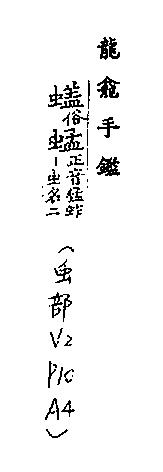 龍龕手鑑
俗蜢正音猛蚱
｜虫名二
(虫部
V2
P10
A4)